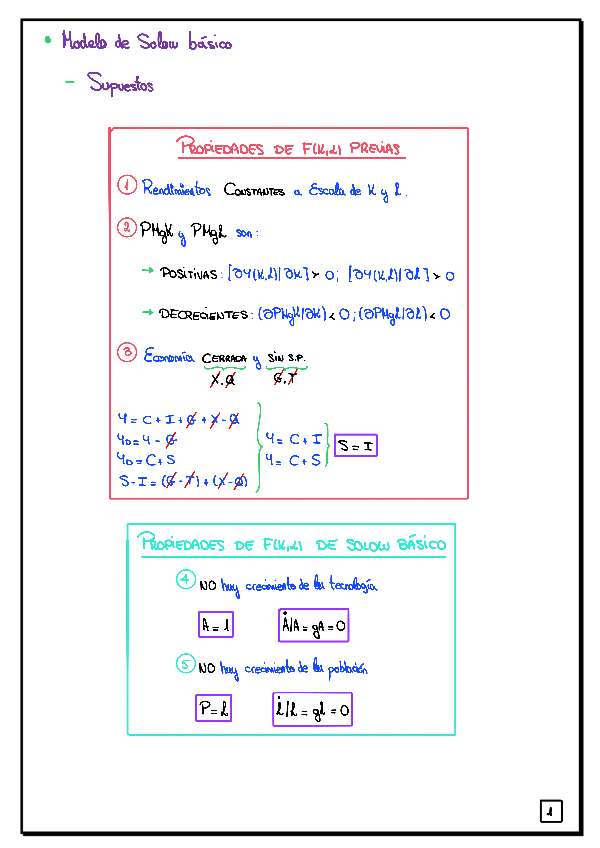 • Modelo de Solow básico
- Supuestos
PROPIEDADES DE F(K,L) PREVIAS
① Rendimientos CONSTANTES a Escala de K y L.
② PMgK y PMgL son:
→ POSITIVAS: [∂Y(K,L)/∂K] > 0; [∂Y(K,L)/∂L] > 0
→ DECRECIENTES: (∂PMgK/∂K) < 0; (∂PMgL/∂L) < 0
③ Economía CERRADA y SIN S.P.
X.Q G.T
Y = C + I + G + X - Q
YD = Y - G
YD = C + S
S - I = (G - T) + (X - Q)
Y = C + I
Y = C + S
S = I
PROPIEDADES DE F(K,L) DE SOLOW BÁSICO
④ NO hay crecimiento de la tecnología
A = 1 Ȧ/A = gA = 0
⑤ NO hay crecimiento de la población
P = L L̇/L = gL = 0
1